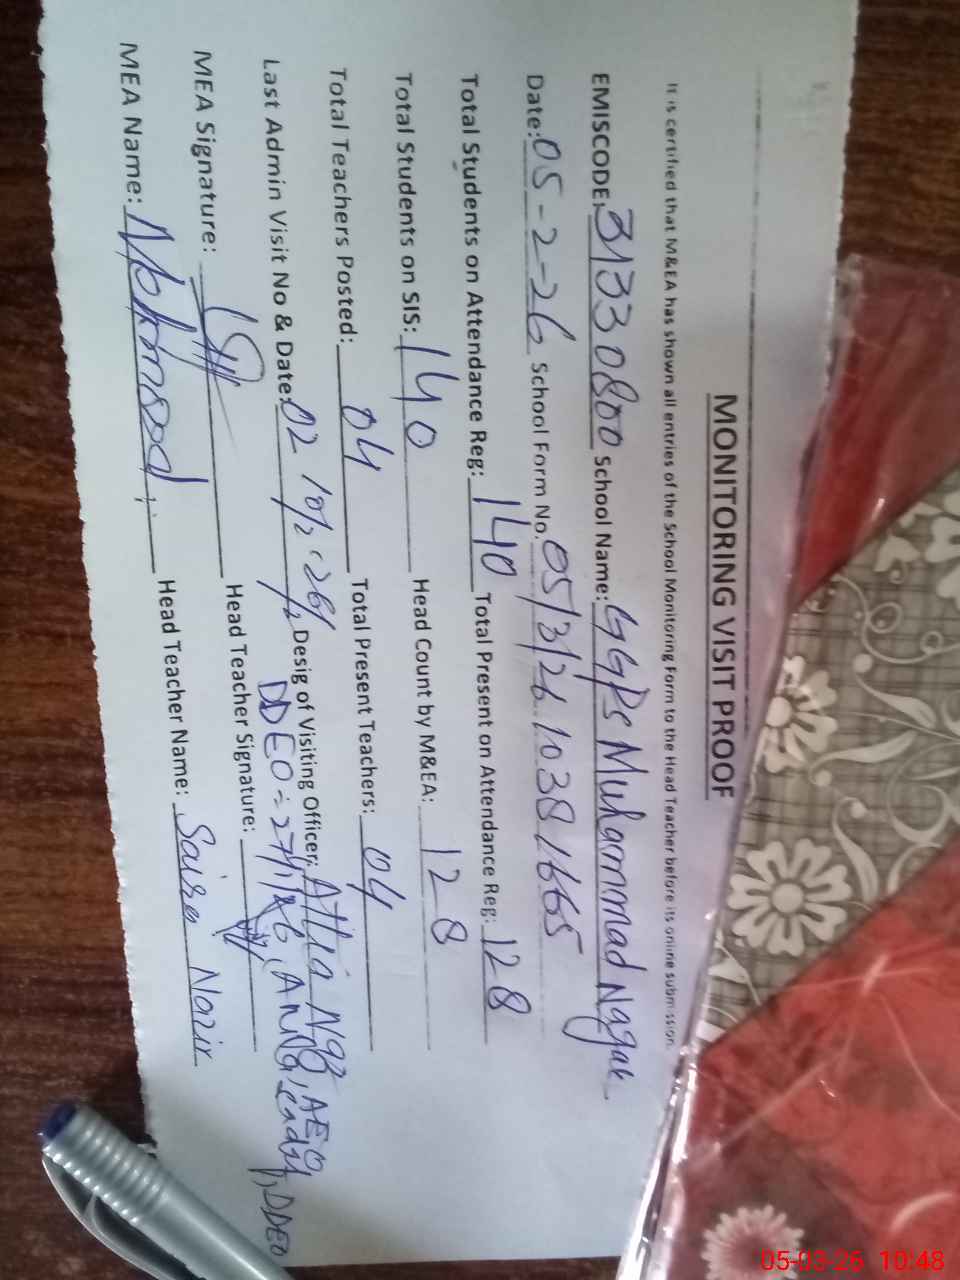 MONITORING VISIT PROOF
It is certified that M&EA has shown all entries of the School Monitoring Form to the Head Teacher before its online submission.
EMISCODE: 31330800 School Name: GGPS Muhammad Naggar
Date: 05-2-26 School Form No. 05/3/26 1038 1665
Total Students on Attendance Reg: 140 Total Present on Attendance Reg: 128
Total Students on SIS: 140 Head Count by M&EA: 128
Total Teachers Posted: 04 Total Present Teachers: 04
Last Admin Visit No & Date: 02 Desig of Visiting Officer: Attia Naz, AEO
DDEO
MEA Signature: Head Teacher Signature:
MEA Name: Head Teacher Name: Saira Nazir
05-03-26 10:48